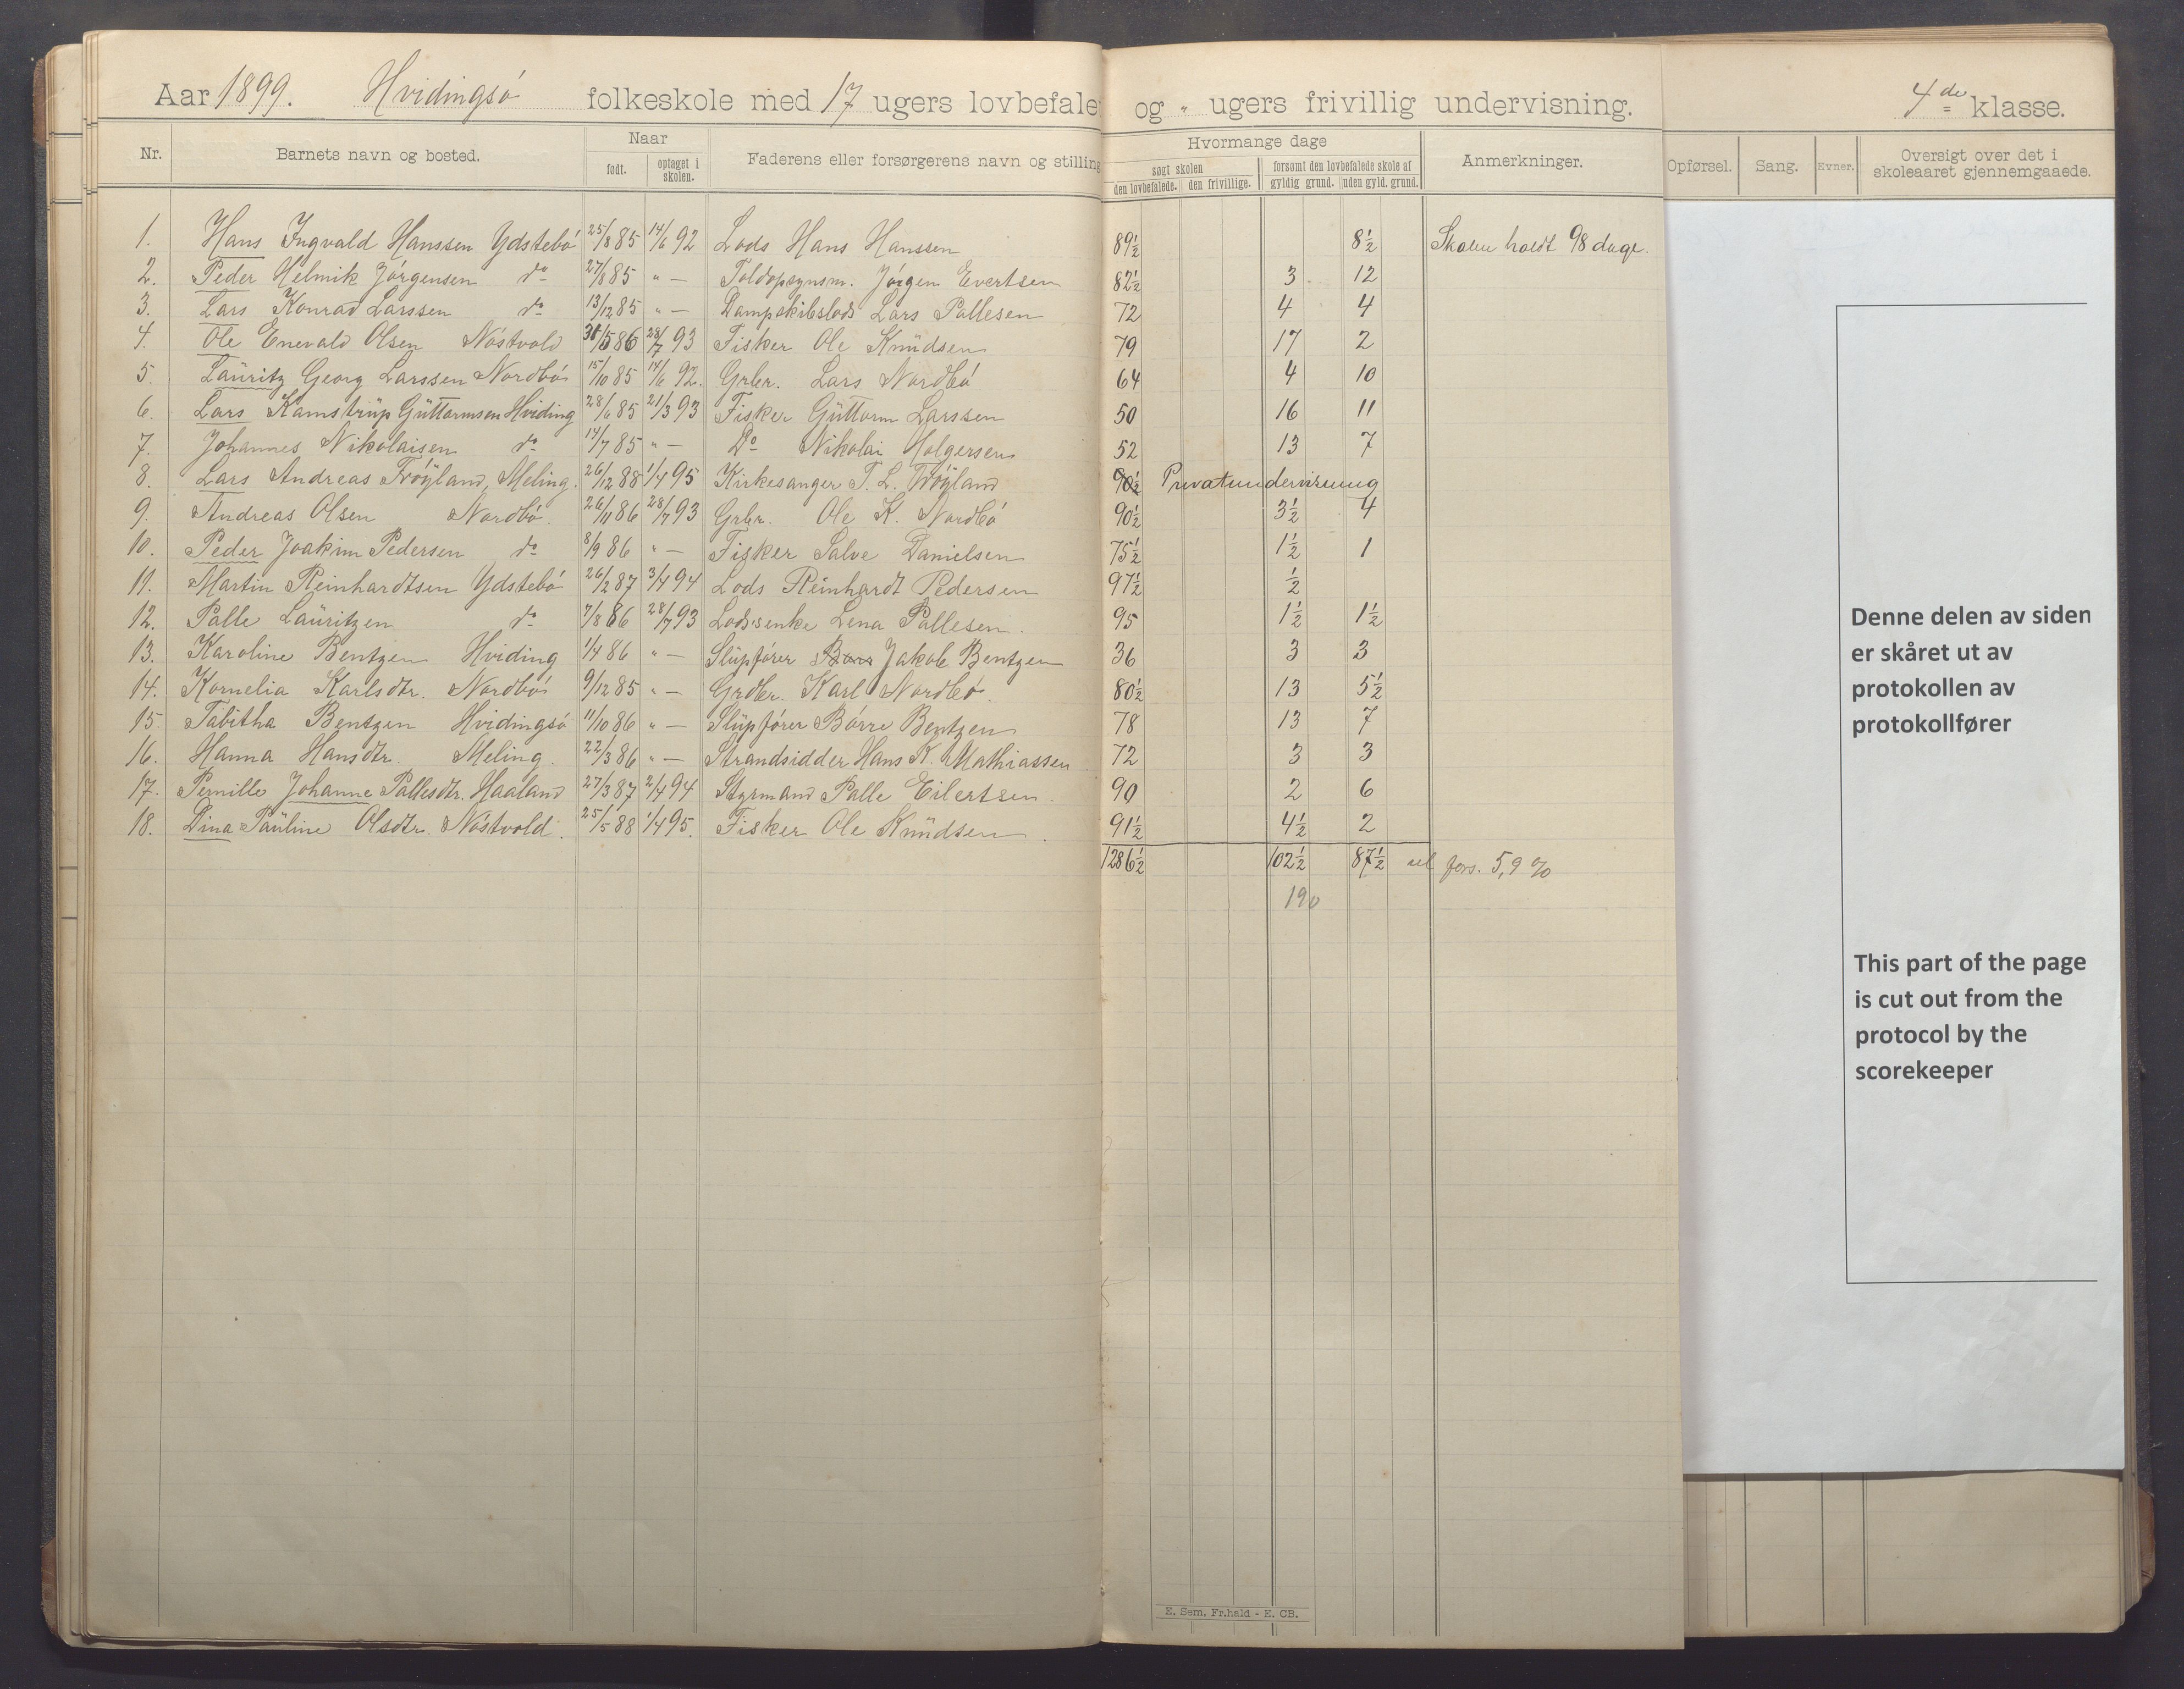 Aar 1899. Hvidingsö folkeskole med 17 ugers lovbefale og " ugers frivillig undervisning. 4de klasse.
Nr. Barnets navn og bosted. Naar født. optaget i skolen. Faderens eller forsørgerens navn og stilling Hvormange dage søgt skolen den lovbefalede. den frivillige. forsømt den lovbefalede skole af gyldig grund. uden gyld. grund. Anmerkninger. Opførsel. Sang. Evner. Oversigt over det i skoleaaret gjennemgaaede.
1. Hans Ingvald Hanssen Ydstebö 25/8 85 14/6 92 Lods Hans Hanssen 89½ 8½ Skolen holdt 98 dage.
2. Peder Helmik Jörgensen do 27/8 85 " — Toldopsynsm. Jörgen Evertsen 82½ 3 12
3. Lars Konrad Larssen do 13/12 85 " — Dampskibslods Lars Pallesen 72 4 4
4. Ole Enevald Olsen Nöstvold 30/5 86 28/7 93 Fisker Ole Knüdsen 79 17 2
5. Laüritz Georg Larssen Nordbö 15/10 85 14/6 92. Grbr. Lars Nordbö 64 4 10
6. Lars Kamstrüp Güttormsen Hviding 28/6 85 21/3 93 Fisker Güttorm Larssen 50 16 11
7. Johannes Nikolaisen do 14/7 85 " — Do Nikolai Holgersen 52 13 7
8. Lars Andreas Tröyland, Meling. 26/12 88 1/4 95 Kirkesanger T. L. Tröyland 90½ Privatundervisning
9. Andreas Olsen Nordbö. 26/11 86 28/7 93 Grbr. Ole K. Nordbö 90½ 3½ 4
10. Peder Joakim Pedersen do 8/9 86 " — Fisker Salve Danielsen 75½ 1½ 1
11. Martin Reinhardtsen Ydstebö 26/2 87 3/4 94 Lods Reinhardt Pedersen 97½ ½
12. Palle Laüritzen do 7/8 86 28/7 93 Lodsenke Lena Pallesen. 95 1½ 1½
13. Karoline Bentzen Hviding 1/4 86 " — Slüpfører Jakob Bentzen 36 3 3
14. Kornelia Karlsdtr. Nordbö 9/12 85 " — Grdbr. Karl Nordbö. 80½ 13 5½
15. Tabitha Bentzen Hvidingsö 11/10 86 " — Slüpfører Börre Bentzen 78 13 7
16. Hanna Hansdtr. Meling. 22/3 86 " — Strandsidder Hans K. Mathiassen 72 3 3
17. Pernille Johanne Pallesdtr. Haaland 27/3 87 2/4 94 Styrmand Palle Eilertsen. 90 2 6
18. Dina Paüline Olsdtr. Nöstvold. 25/5 88 1/4 95. Fisker Ole Knüdsen. 91½ 4½ 2
1286½ 102½ 87½ ul fors. 5,9 %
190
Denne delen av siden
er skåret ut av
protokollen av
protokollfører
This part of the page
is cut out from the
protocol by the
scorekeeper
E. Sem, Fr.hald - E. CB.